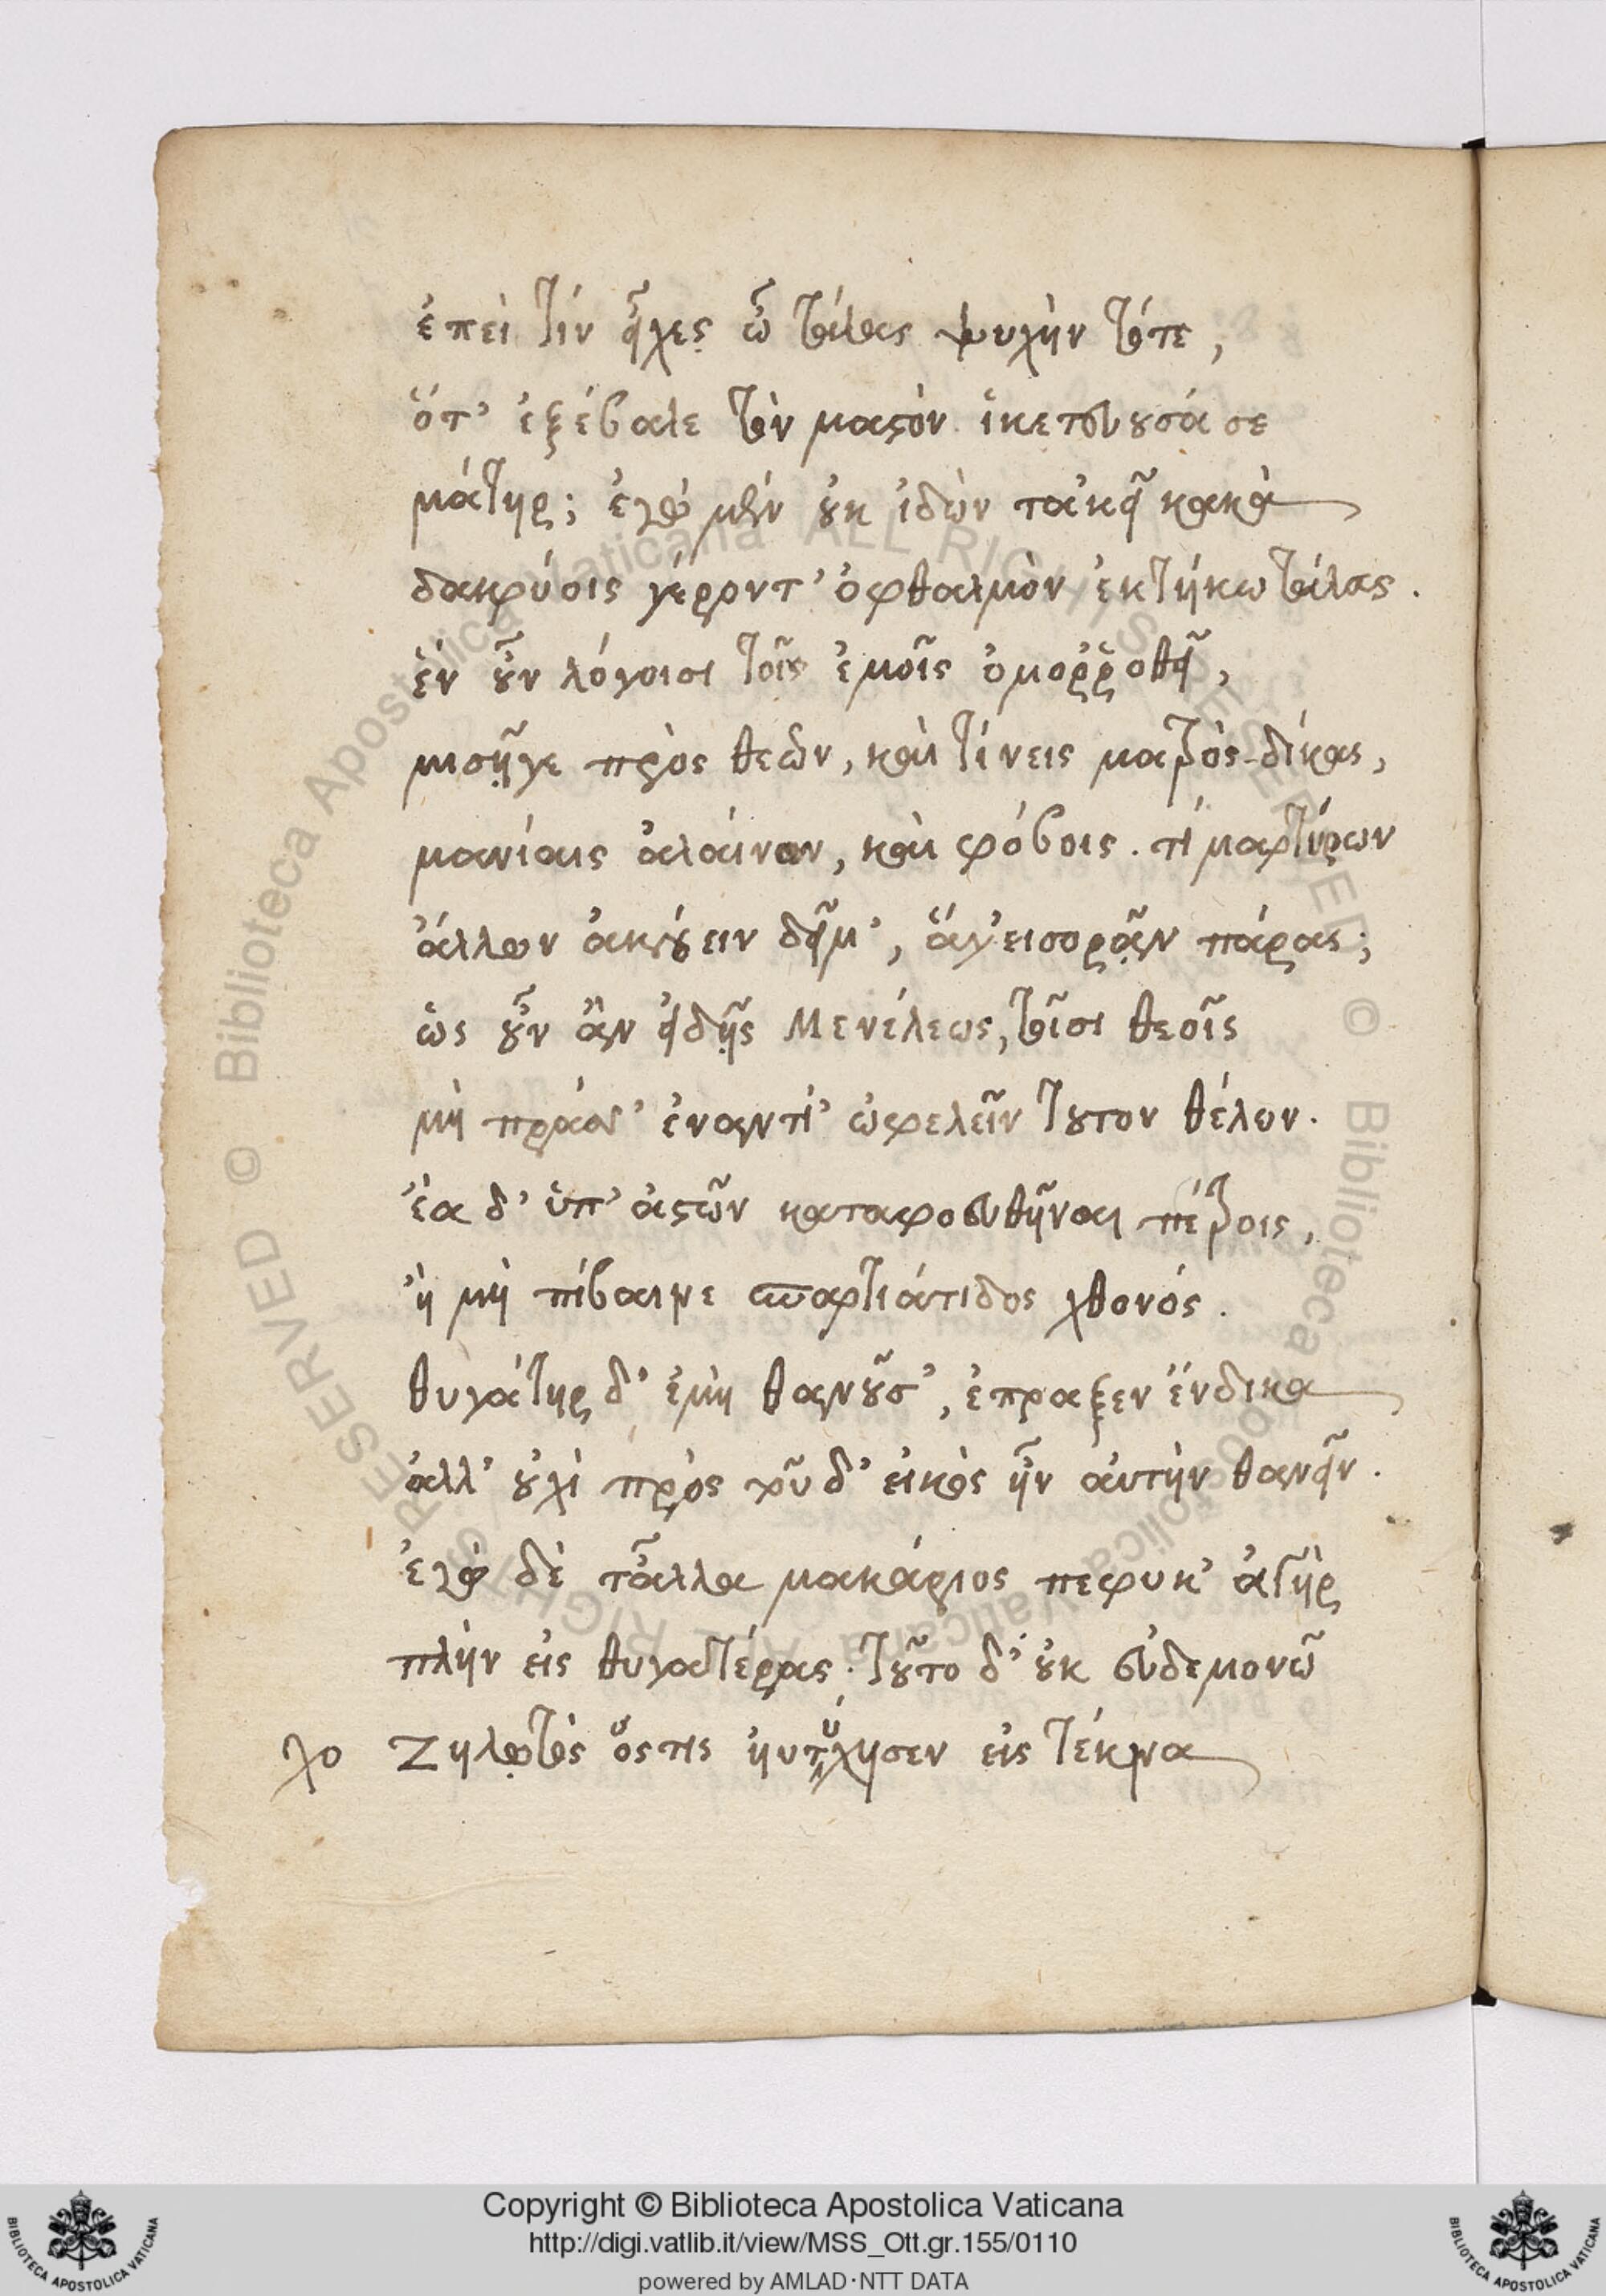 ἐπεὶ τίν' εἶχες ὦ τάλας ψυχὴν τότε,
ὅτ' ἐξέβαλε τὸν μαστὸν ἱκετεύουσά σε
μάτηρ; ἐγὼ μὲν οὐκ ἰδὼν τἀκεῖ κακὰ
δακρύοις γέροντ' ὀφθαλμὸν ἐκτήκω τάλας.
ἓν οὖν λόγοισι τοῖς ἐμοῖς ὁμορροθεῖ,
μισῇ γε πρὸς θεῶν, καὶ τίνεις ματρὸς δίκας,
μανίαις ἀλαίνων, καὶ φόβοις. τί μαρτύρων
ἄλλων ἀκούειν δεῖ μ', ἅ γ' εἰσορᾶν πάρας;
ὡς οὖν ἂν εἰδῇς Μενέλεως, τοῖσι θεοῖς
μὴ πράσσ' ἐναντί' ὠφελεῖν τοῦτον θέλων.
ἔα δ' ὑπ' ἀστῶν καταφονευθῆναι πέτροις,
ἢ μὴ πίβαινε σπαρτιάτιδος χθονός.
θυγάτηρ δ' ἐμὴ θανοῦσ', ἔπραξεν ἔνδικα
ἀλλ' οὐχὶ πρὸς τοῦδ' εἰκὸς ἦν αὐτὴν θανεῖν.
ἐγὼ δὲ τἆλλα μακάριος πέφυκ' ἀνὴρ
πλὴν εἰς θυγατέρας· τοῦτο δ' οὐκ εὐδεμονῶ
χο Ζηλωτὸς ὅστις ηὐτύχησεν εἰς τέκνα
Copyright © Biblioteca Apostolica Vaticana
http://digi.vatlib.it/view/MSS_Ott.gr.155/0110
powered by AMLAD·NTT DATA
BIBLIOTECA APOSTOLICA VATICANA
BIBLIOTECA APOSTOLICA VATICANA
© Biblioteca Apostolica Vaticana ALL RIGHTS RESERVED © Biblioteca Apostolica Vaticana ALL RIGHTS RESERVED